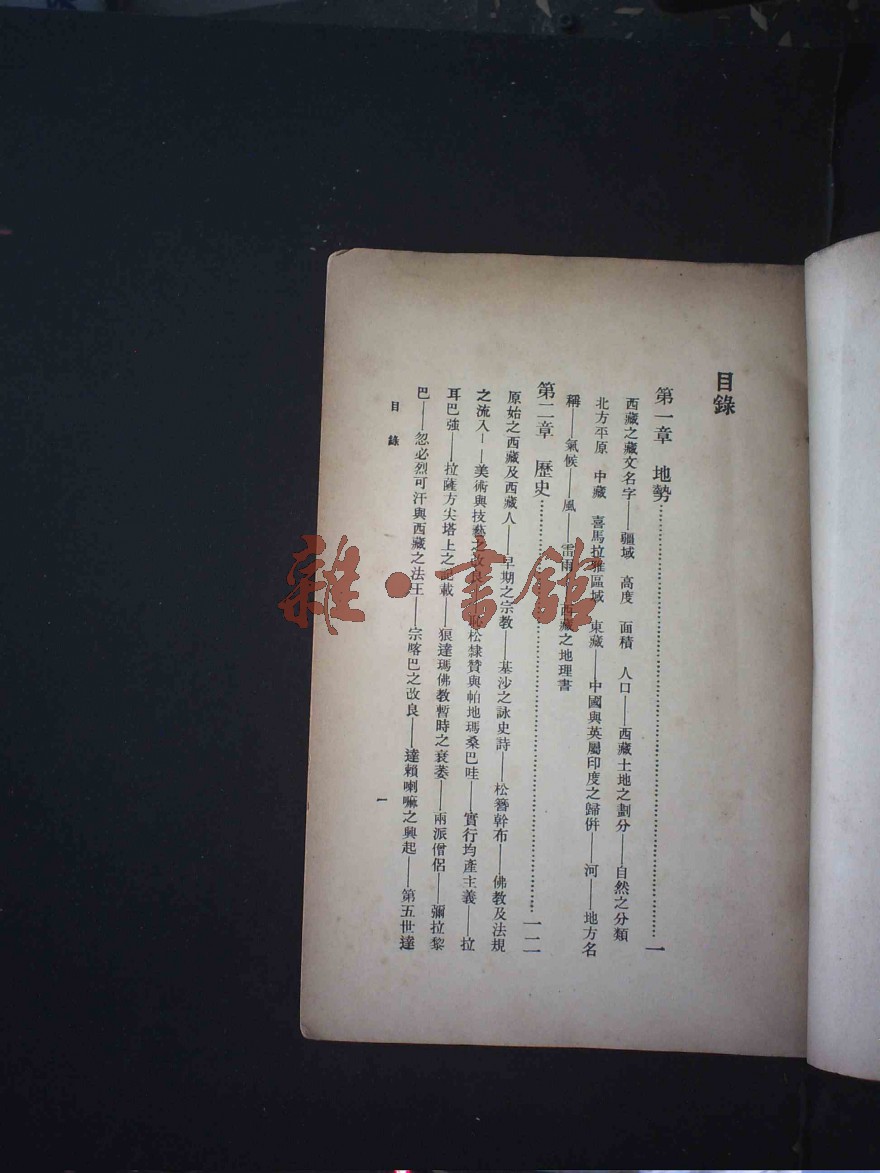 目錄
第一章 地勢……一
西藏之藏文名字——疆域 高度 面積 人口——西藏土地之劃分——自然之分類
北方平原 中藏 喜馬拉雅區域 東藏——中國與英屬印度之歸併——河——地方名
稱——氣候——風——雷雨——西藏之地理書
第二章 歷史……一二
原始之西藏及西藏人——早期之宗教——基沙之詠史詩——松簪幹布——佛教及法規
之流入——美術與技藝之改良——松隸贊與帕地瑪桑巴哇——實行均產主義——拉
耳巴強——拉薩方尖塔上之記載——狼達瑪佛教暫時之衰萎——兩派僧侶——彌拉黎
巴——忽必烈可汗與西藏之法王——宗喀巴之改良——達賴喇嘛之興起——第五世達
目錄
一
雜·書館